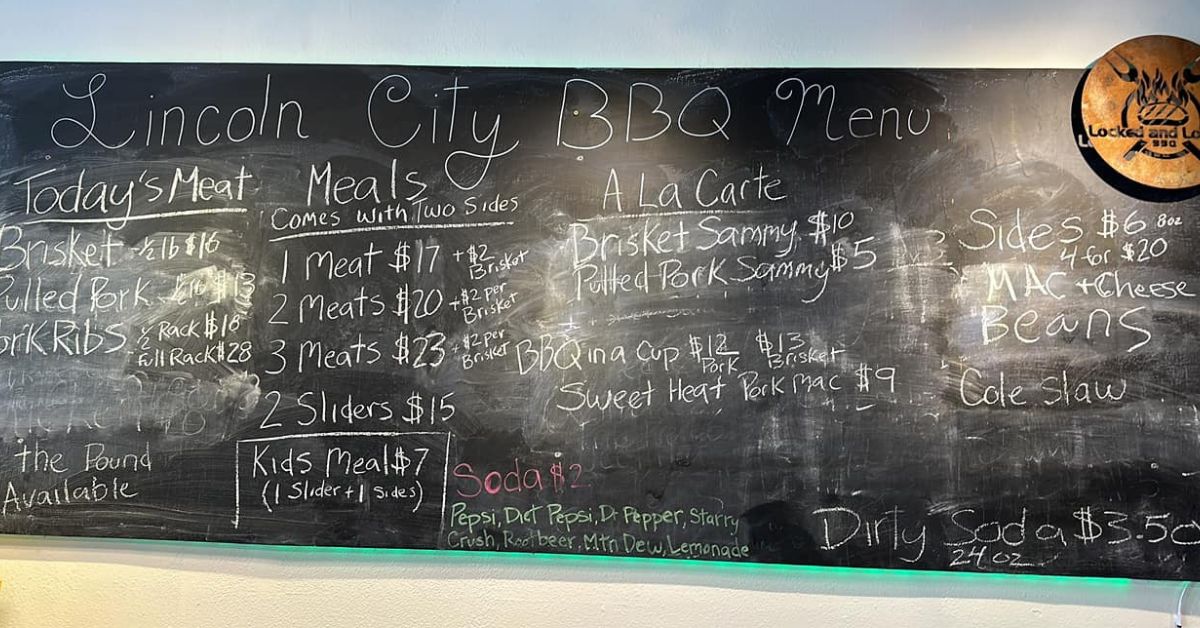 Lincoln City BBQ Menu
Locked and
BBQ
Today's Meat
Brisket ½ lb $16
Pulled Pork ½ lb $13
Pork Ribs ½ Rack $18
Full Rack $28
the Pound
Available
Meals
Comes with Two Sides
1 Meat $17 +$2 Brisket
2 Meats $20 +$2 per Brisket
3 Meats $23 +$2 per Brisket
2 Sliders $15
Kids Meal $7
(1 Slider + 1 Sides)
A La Carte
Brisket Sammy $10
Pulled Pork Sammy $5
BBQ in a Cup $12 Pork $13 Brisket
Sweet Heat Pork Mac $9
Soda $2
Pepsi, Diet Pepsi, Dr Pepper, Starry
Crush, Rootbeer, Mtn Dew, Lemonade
Sides $6 8oz
4 for $20
MAC + Cheese
Beans
Cole Slaw
Dirty Soda $3.50
24 oz